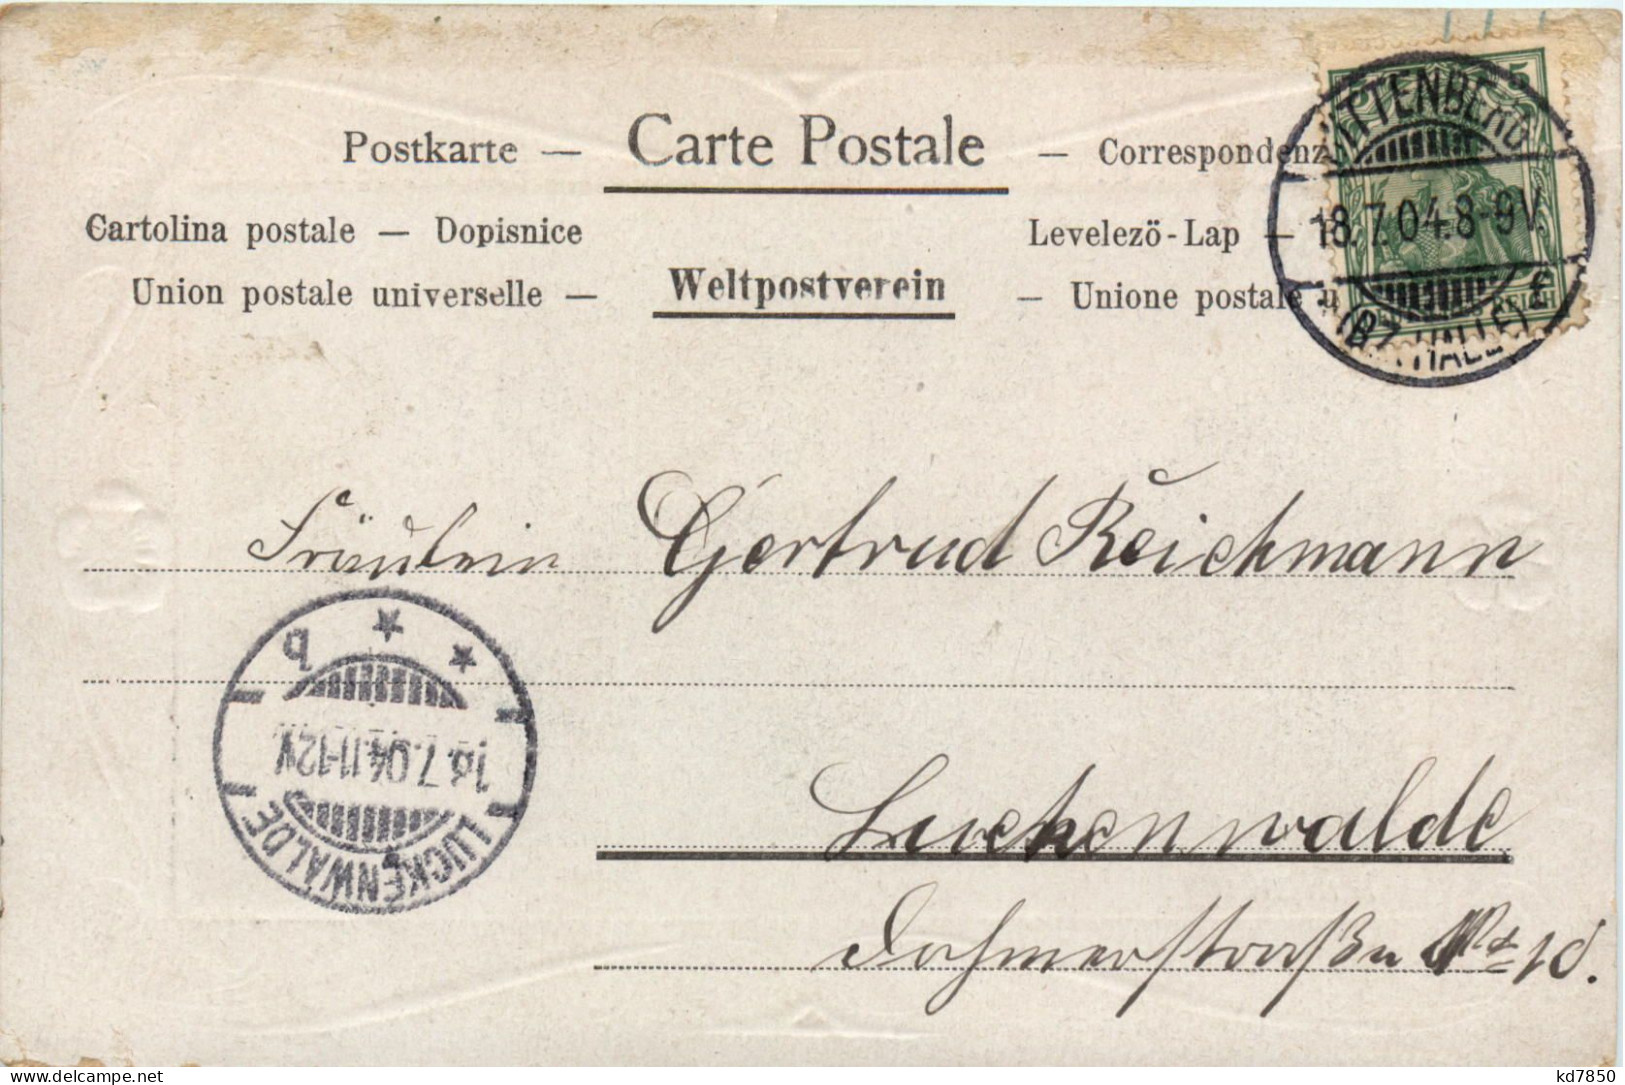 Postkarte — Carte Postale — Correspondenz
Cartolina postale — Dopisnice
Levelezö-Lap —
Union postale universelle — Weltpostverein — Unione postale u
5
REICH
WITTENBERG
18.7.04.8-9V.
(BZ. HALLE)
Fräulein Gertrud Reichmann
b
18.7.04.11-12V.
LUCKENWALDE
Luckenwalde
10.
kd7850